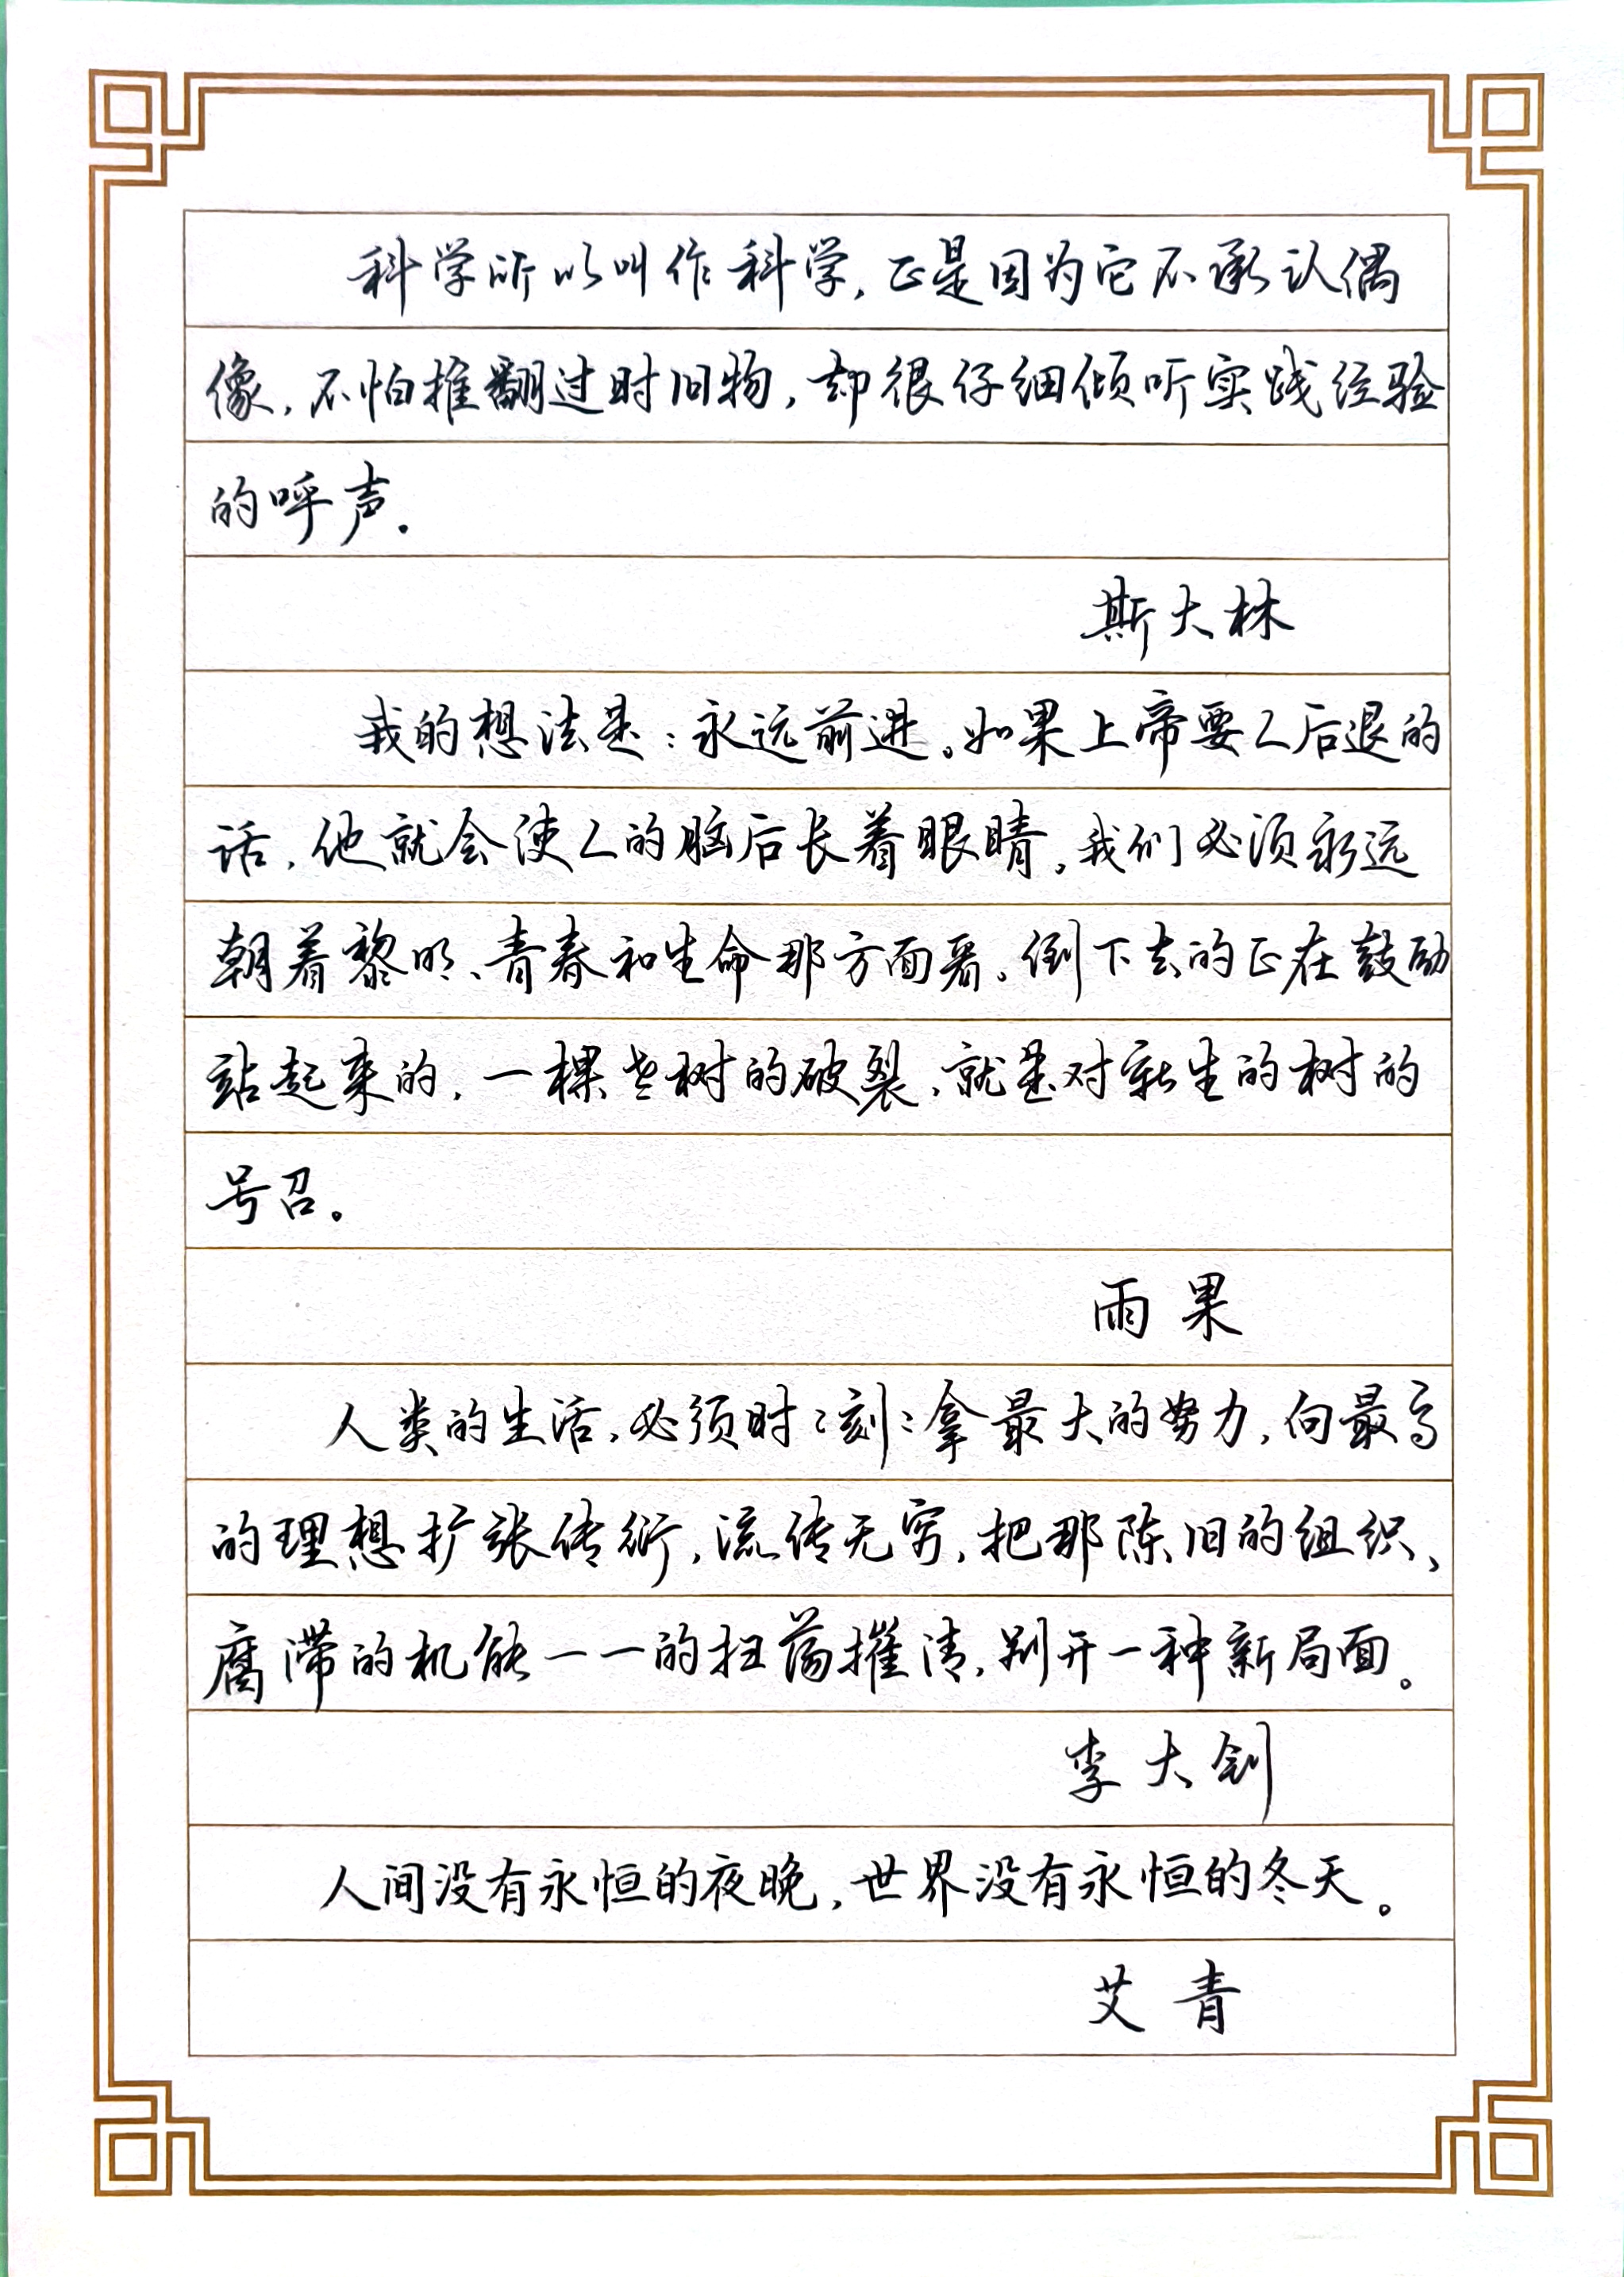 科学所以叫作科学,正是因为它不承认偶
像,不怕推翻过时旧物,却很仔细倾听实践经验
的呼声.
斯大林
我的想法是:永远前进。如果上帝要人后退的
话,他就会使人的脑后长着眼睛。我们必须永远
朝着黎明、青春和生命那方面看。倒下去的正在鼓励
站起来的,一棵老树的破裂,就是对新生的树的
号召。
雨果
人类的生活,必须时々刻々拿最大的努力,向最高
的理想扩张传衍,流传无穷,把那陈旧的组织、
腐滞的机能一一的扫荡摧清,别开一种新局面。
李大钊
人间没有永恒的夜晚,世界没有永恒的冬天。
艾青